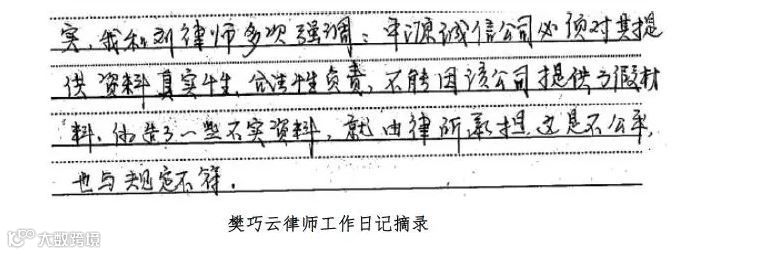 实，我和刘律师多次强调：中源诚信公司必须对其提
供资料真实性、合法性负责，不能因该公司提供了假材
料、伪造了一些不实资料，就由律所承担，这是不公平，
也与规定不符。
樊巧云律师工作日记摘录
大数跨境